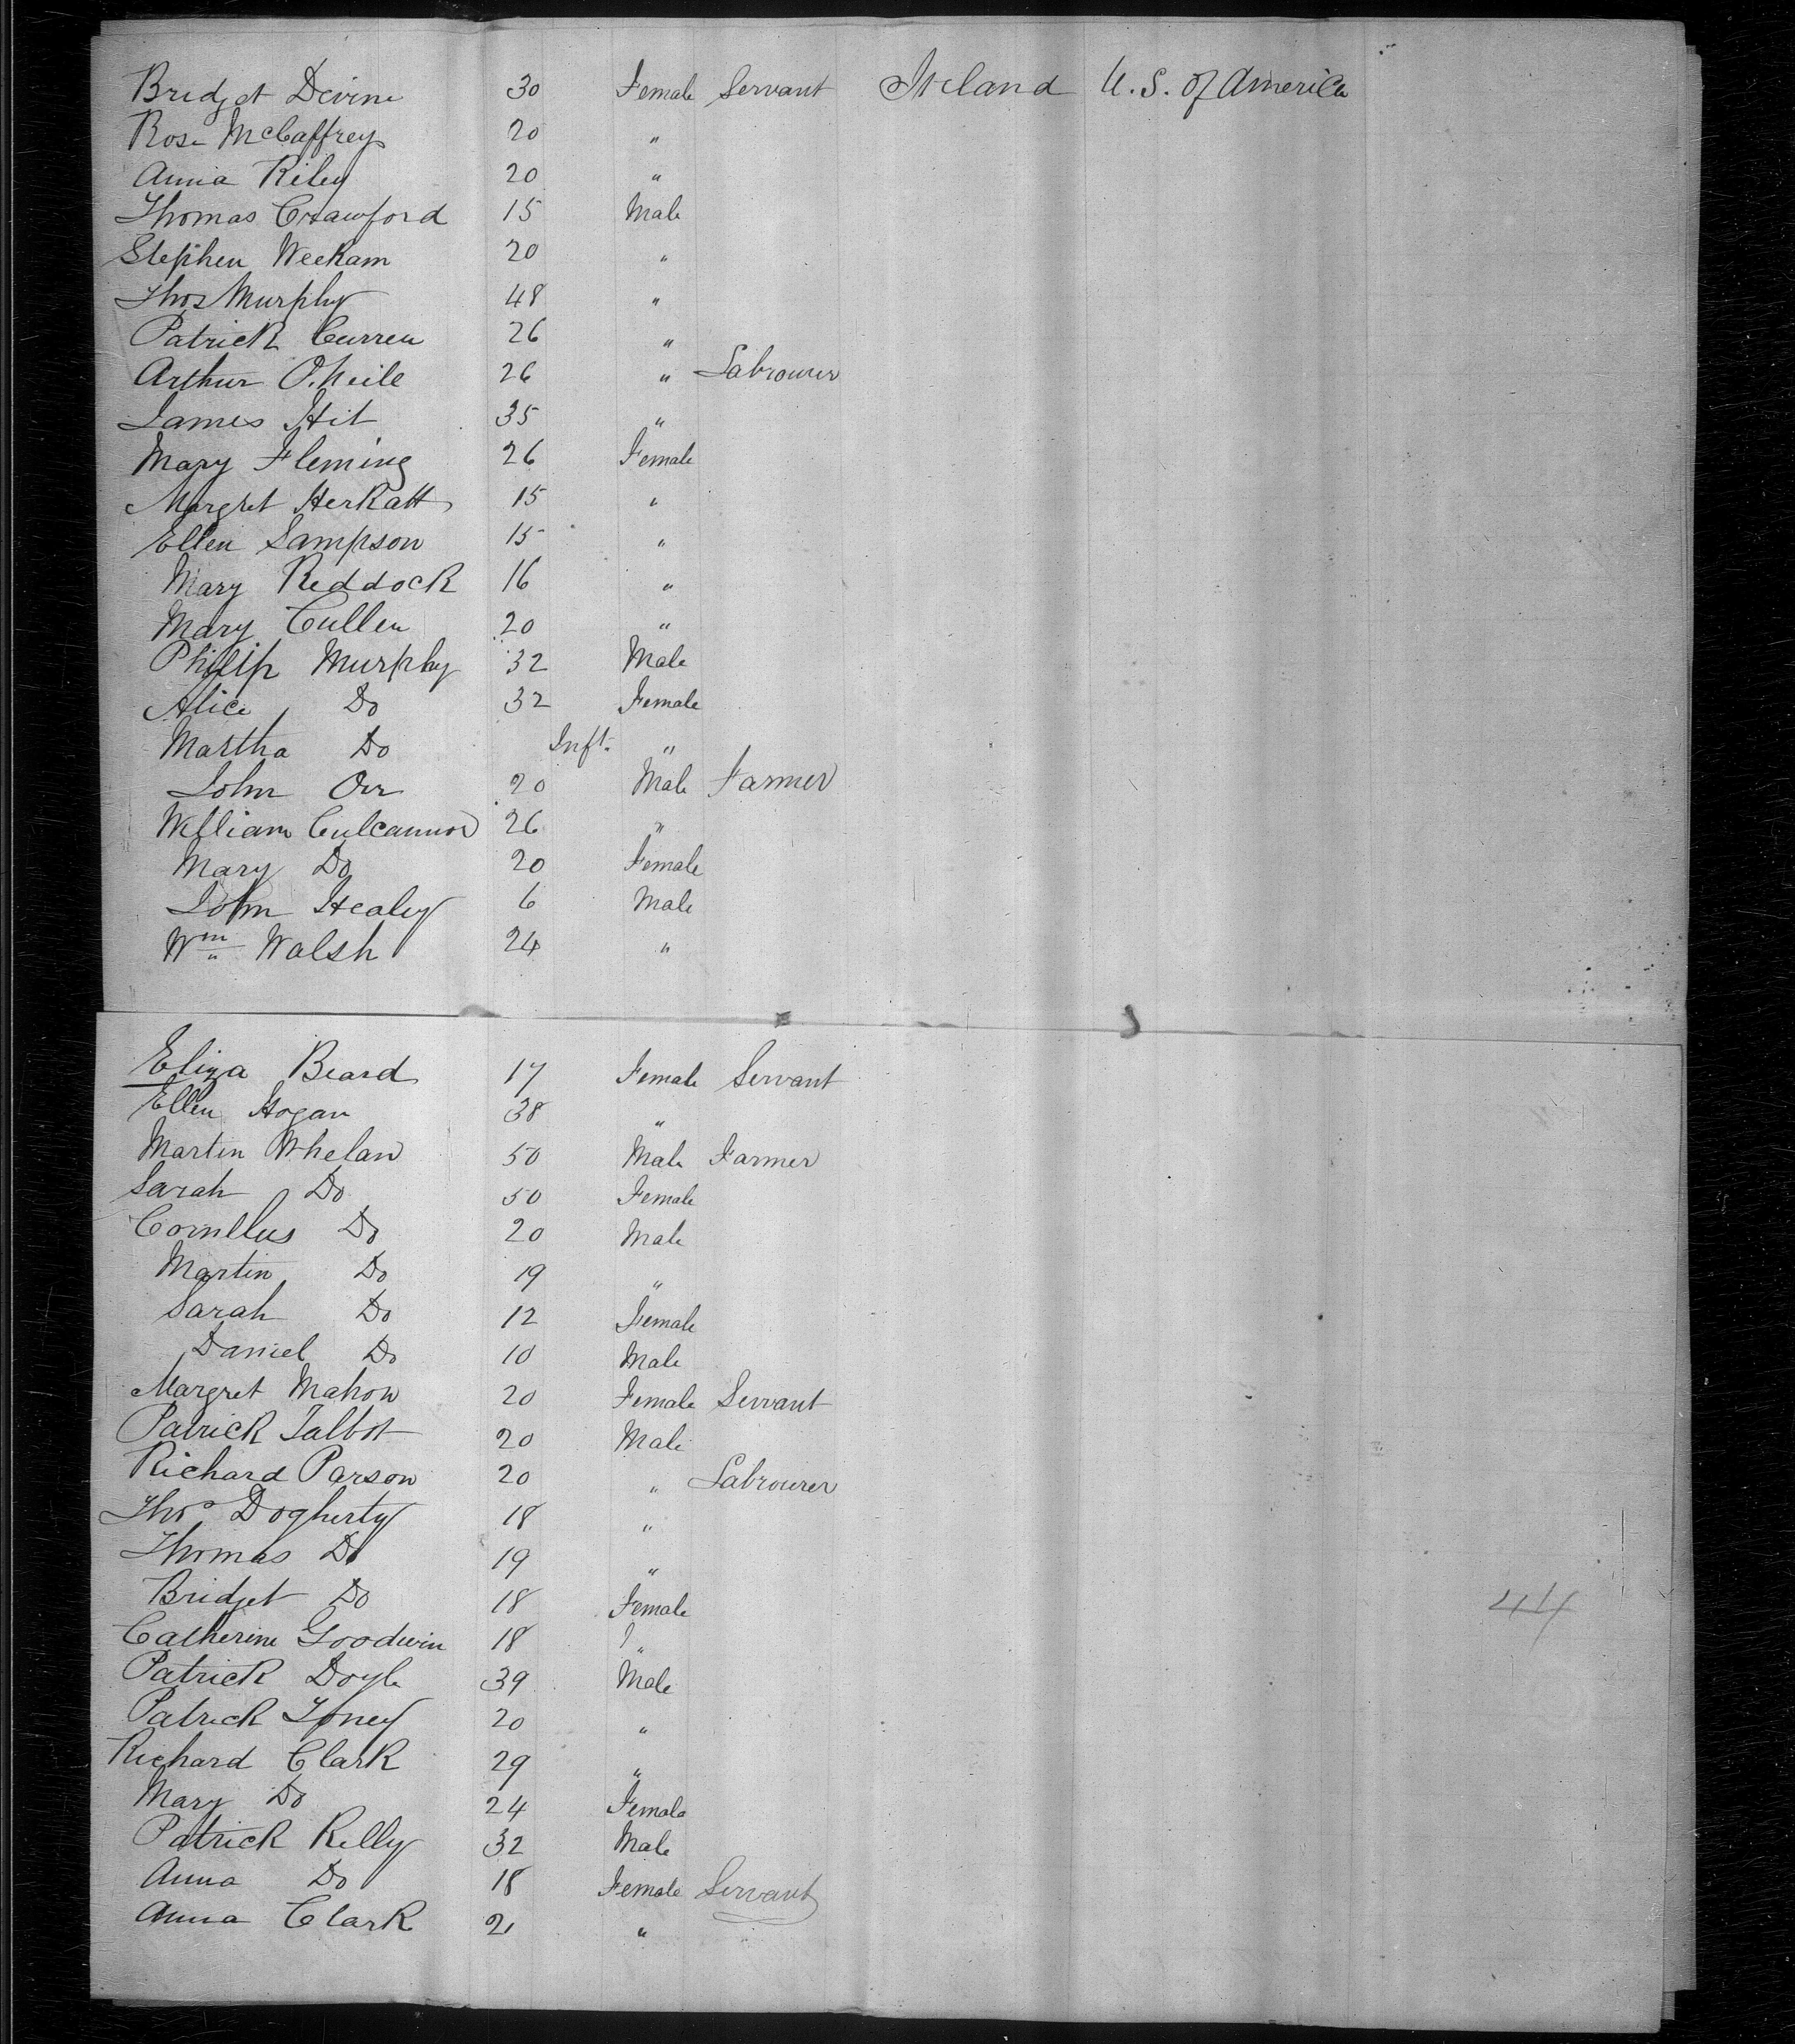 Bridget Devine 30 Female Servant Ireland U.S. of America
Rose McCaffrey 20 "
Annia Riley 20 "
Thomas Crawford 15 Male
Stephen Weekam 20 "
Thos Murphy 48 "
Patrick Curren 26 "
Arthur O.Neile 26 " Labrourer
James Hit 35 "
Mary Fleming 26 Female
Margret Herkatt 15 "
Ellen Sampson 15 "
Mary Reddock 16 "
Mary Cullen 20 "
Philip Murphy 32 Male
Alice Do 32 Female
Martha Do Inft. "
John Orr 20 Male Farmer
William Culcannon 26 "
Mary Do 20 Female
John Healey 6 Male
Wm Walsh 24 "
Eliza Beard 17 Female Servant
Ellen Hogan 38 "
Martin Whelan 50 Male Farmer
Sarah Do 50 Female
Cornllus Do 20 Male
Martin Do 19 "
Sarah Do 12 Female
Daniel Do 10 Male
Margret Mahon 20 Female Servant
Patrick Talbot 20 Male
Richard Parson 20 " Labrourer
Thos Dogherty 18 "
Thomas Do 19 "
Bridget Do 18 Female
Catherine Goodwin 18 "
Patrick Doyle 39 Male
Patrick 20 "
Richard Clark 29 "
Mary Do 24 Female
Patrick Kelly 32 Male
Anna Do 18 Female Servant
Anna Clark 21 "
44